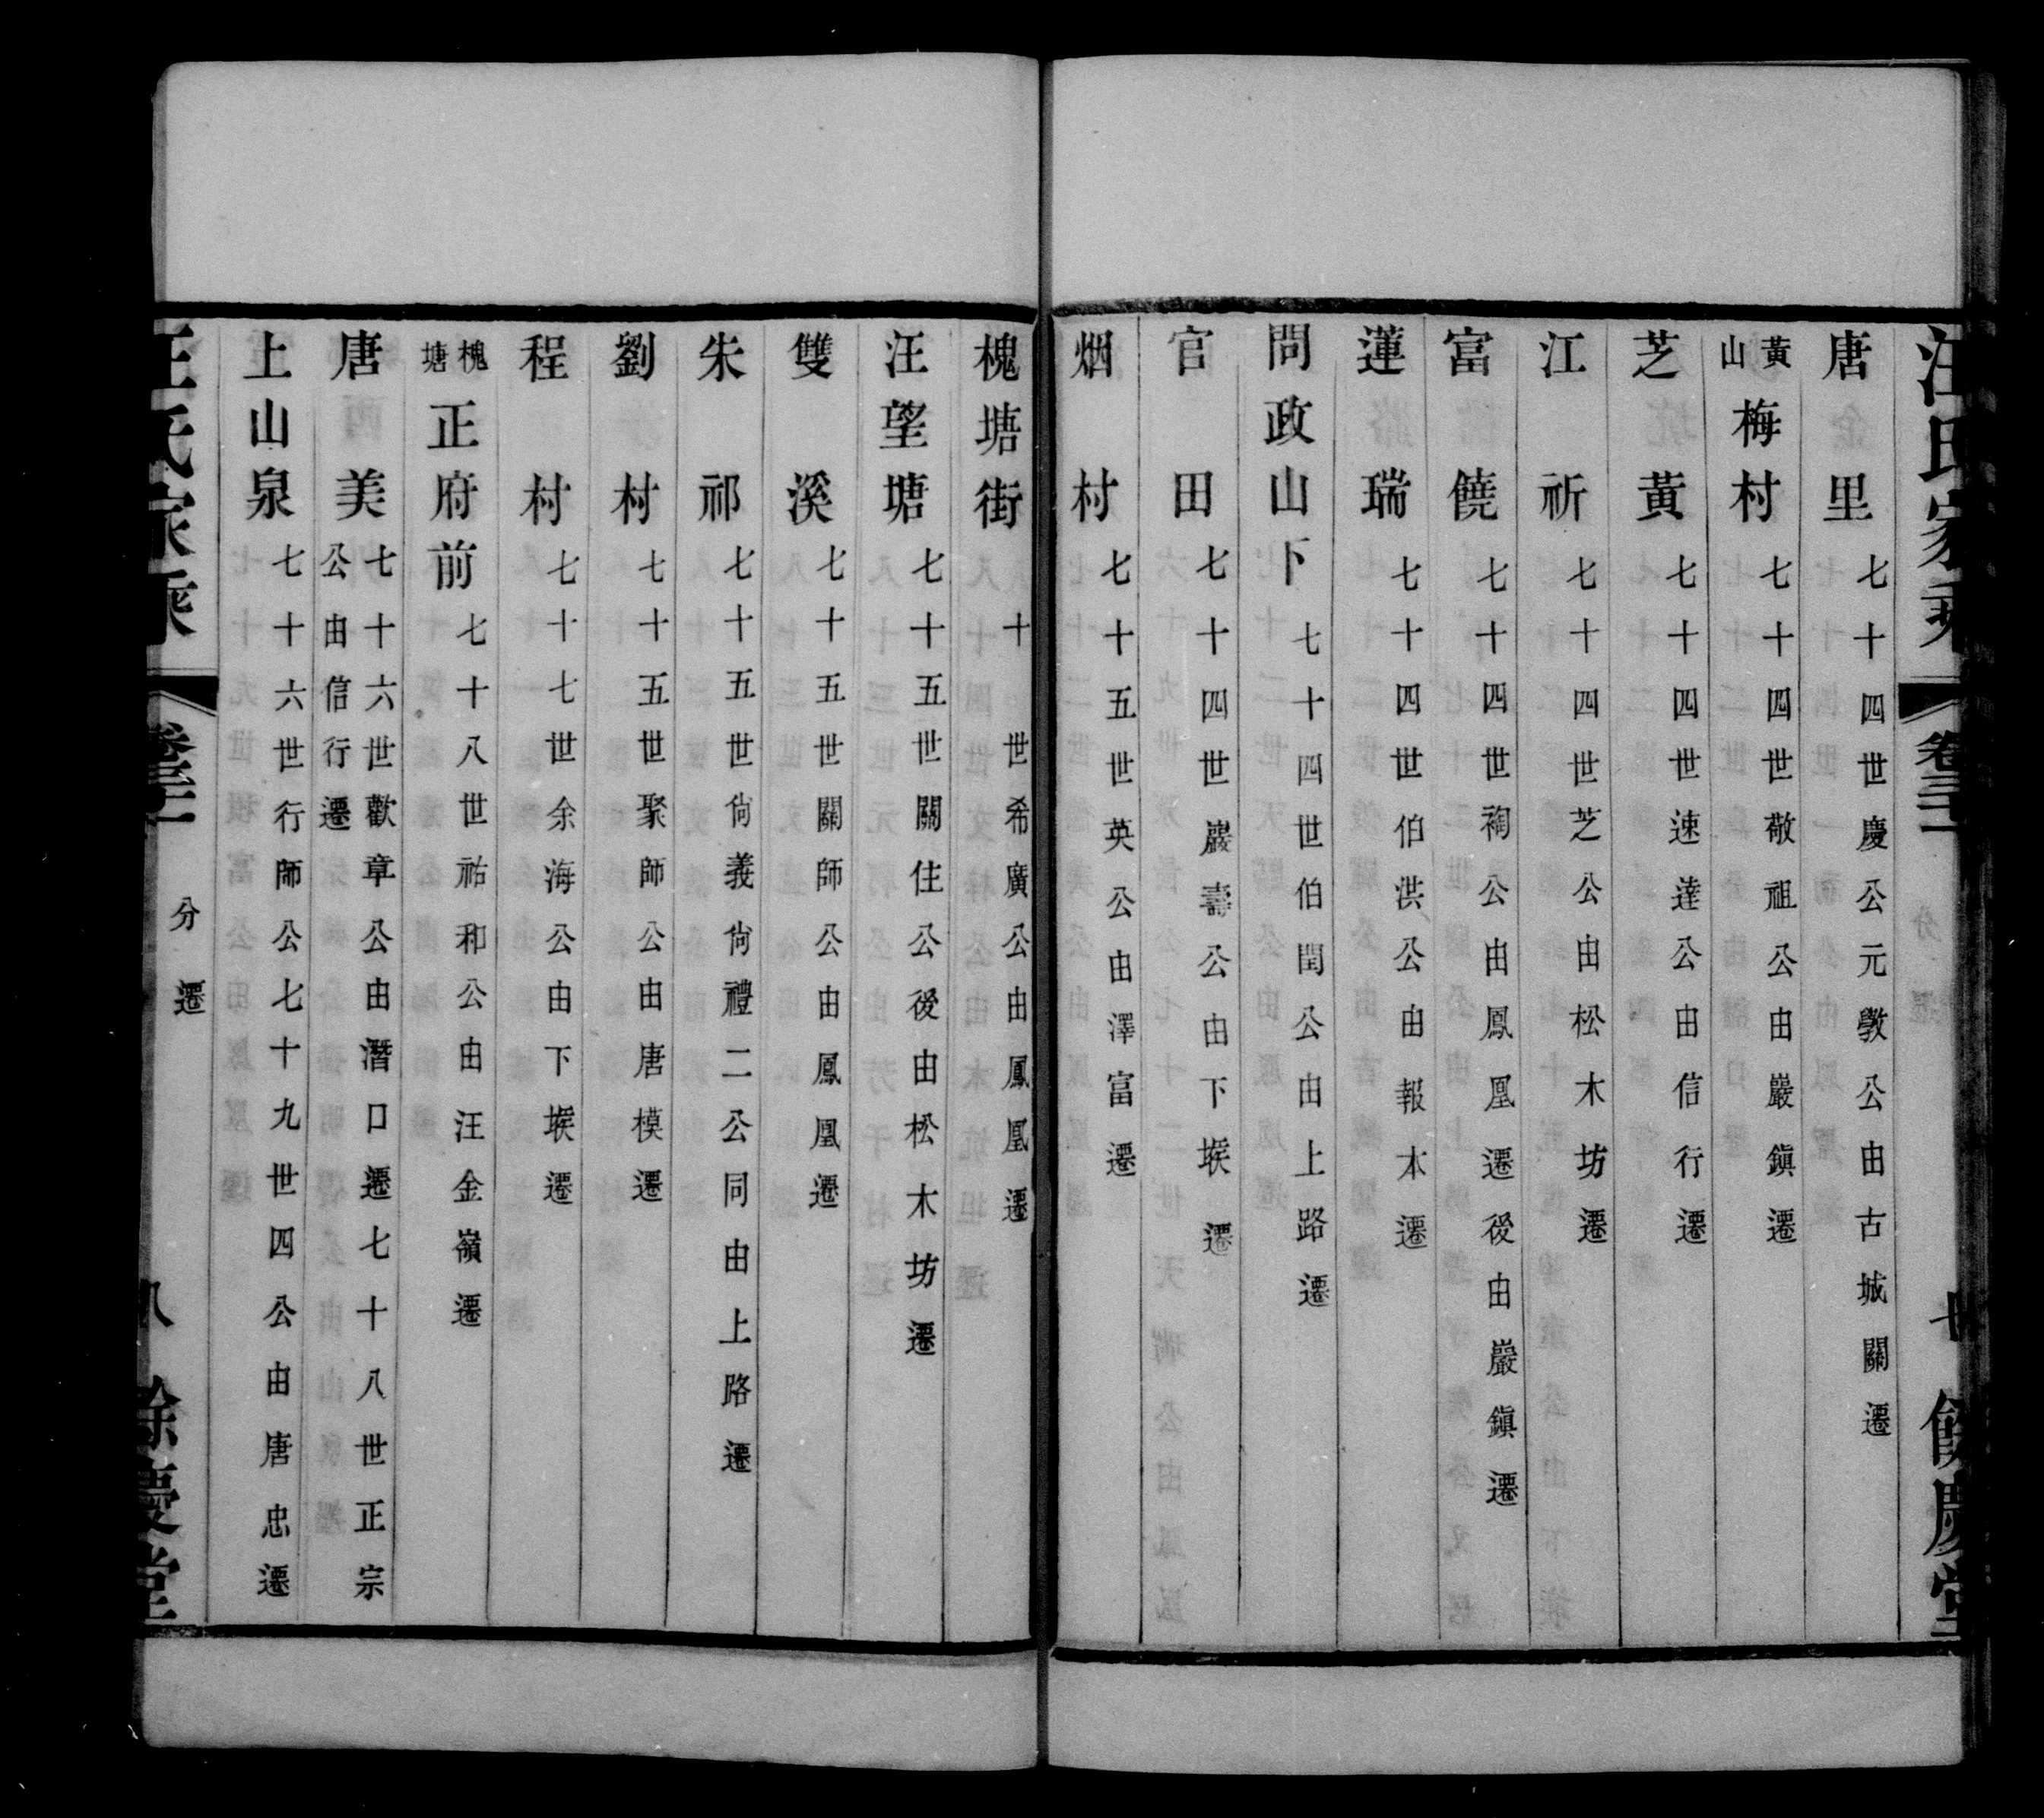 汪氏家乘 卷三 餘慶堂
唐里 七十四世慶公元敎公由古城關遷
黃山梅村 七十四世敬祖公由巖鎮遷
芝黃 七十四世速達公由信行遷
江祈 七十四世芝公由松木坊遷
富饒 七十四世裪公由鳳凰遷後由巖鎮遷
蓮瑞 七十四世伯洪公由報本遷
問政山下 七十四世伯閏公由上路遷
官田 七十四世巖壽公由下堠遷
烟村 七十五世英公由澤富遷
槐塘街 十世希廣公由鳳凰遷
汪望塘 七十五世關住公後由松木坊遷
雙溪 七十五世關師公由鳳凰遷
朱祁 七十五世尙義尙禮二公同由上路遷
劉村 七十五世聚師公由唐模遷
程村 七十七世余海公由下堠遷
槐塘正府前 七十八世祐和公由汪金嶺遷
唐美 七十六世歡章公由潛口遷七十八世正宗
公由信行遷
上山泉 七十六世行師公七十九世四公由唐忠遷
汪氏家乘 卷三 分遷 八 餘慶堂